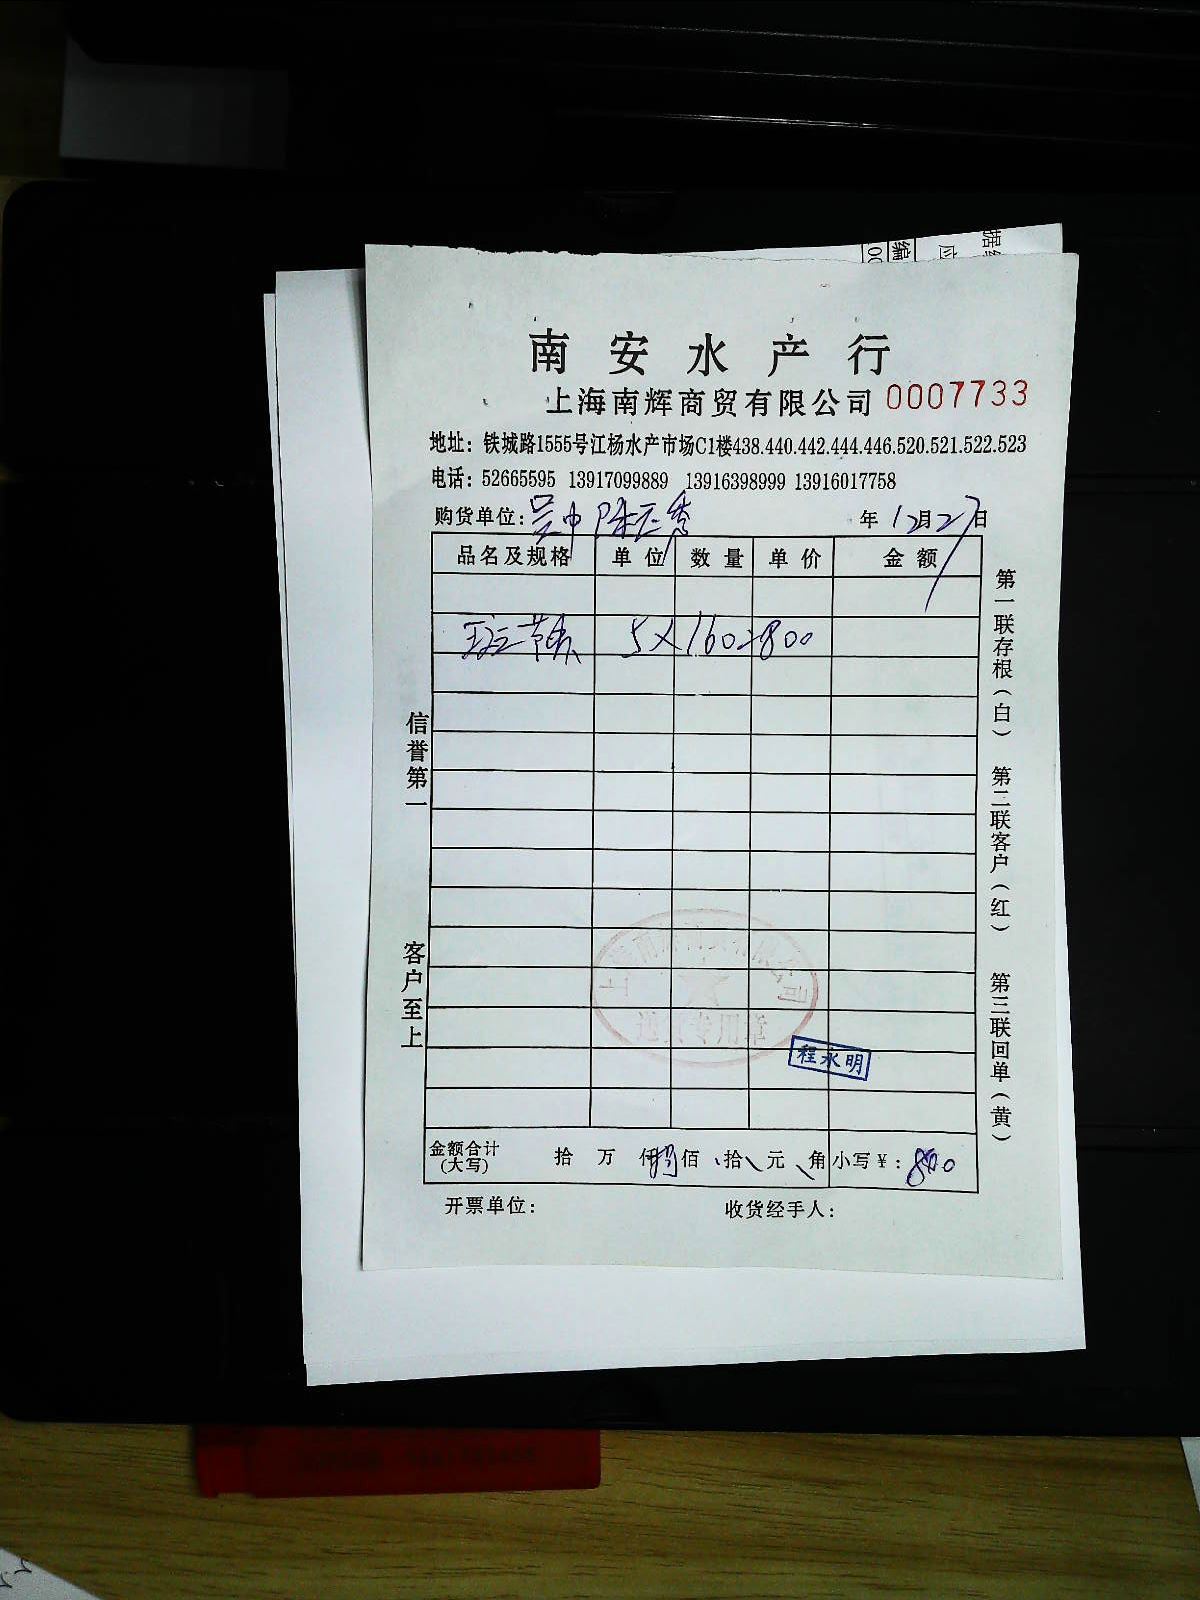 南安水产行
上海南辉商贸有限公司 0007733
地址：铁城路1555号江杨水产市场C1楼438.440.442.444.446.520.521.522.523
电话：52665595 13917099889 13916398999 13916017758
购货单位： 年12月27日
品名及规格 单位 数量 单价 金额
5×160=800
金额合计
（大写） 拾 万 仟 捌佰 拾 元 角 小写￥：800
开票单位： 收货经手人：
信誉第一 客户至上
第一联存根（白） 第二联客户（红） 第三联回单（黄）
程永明